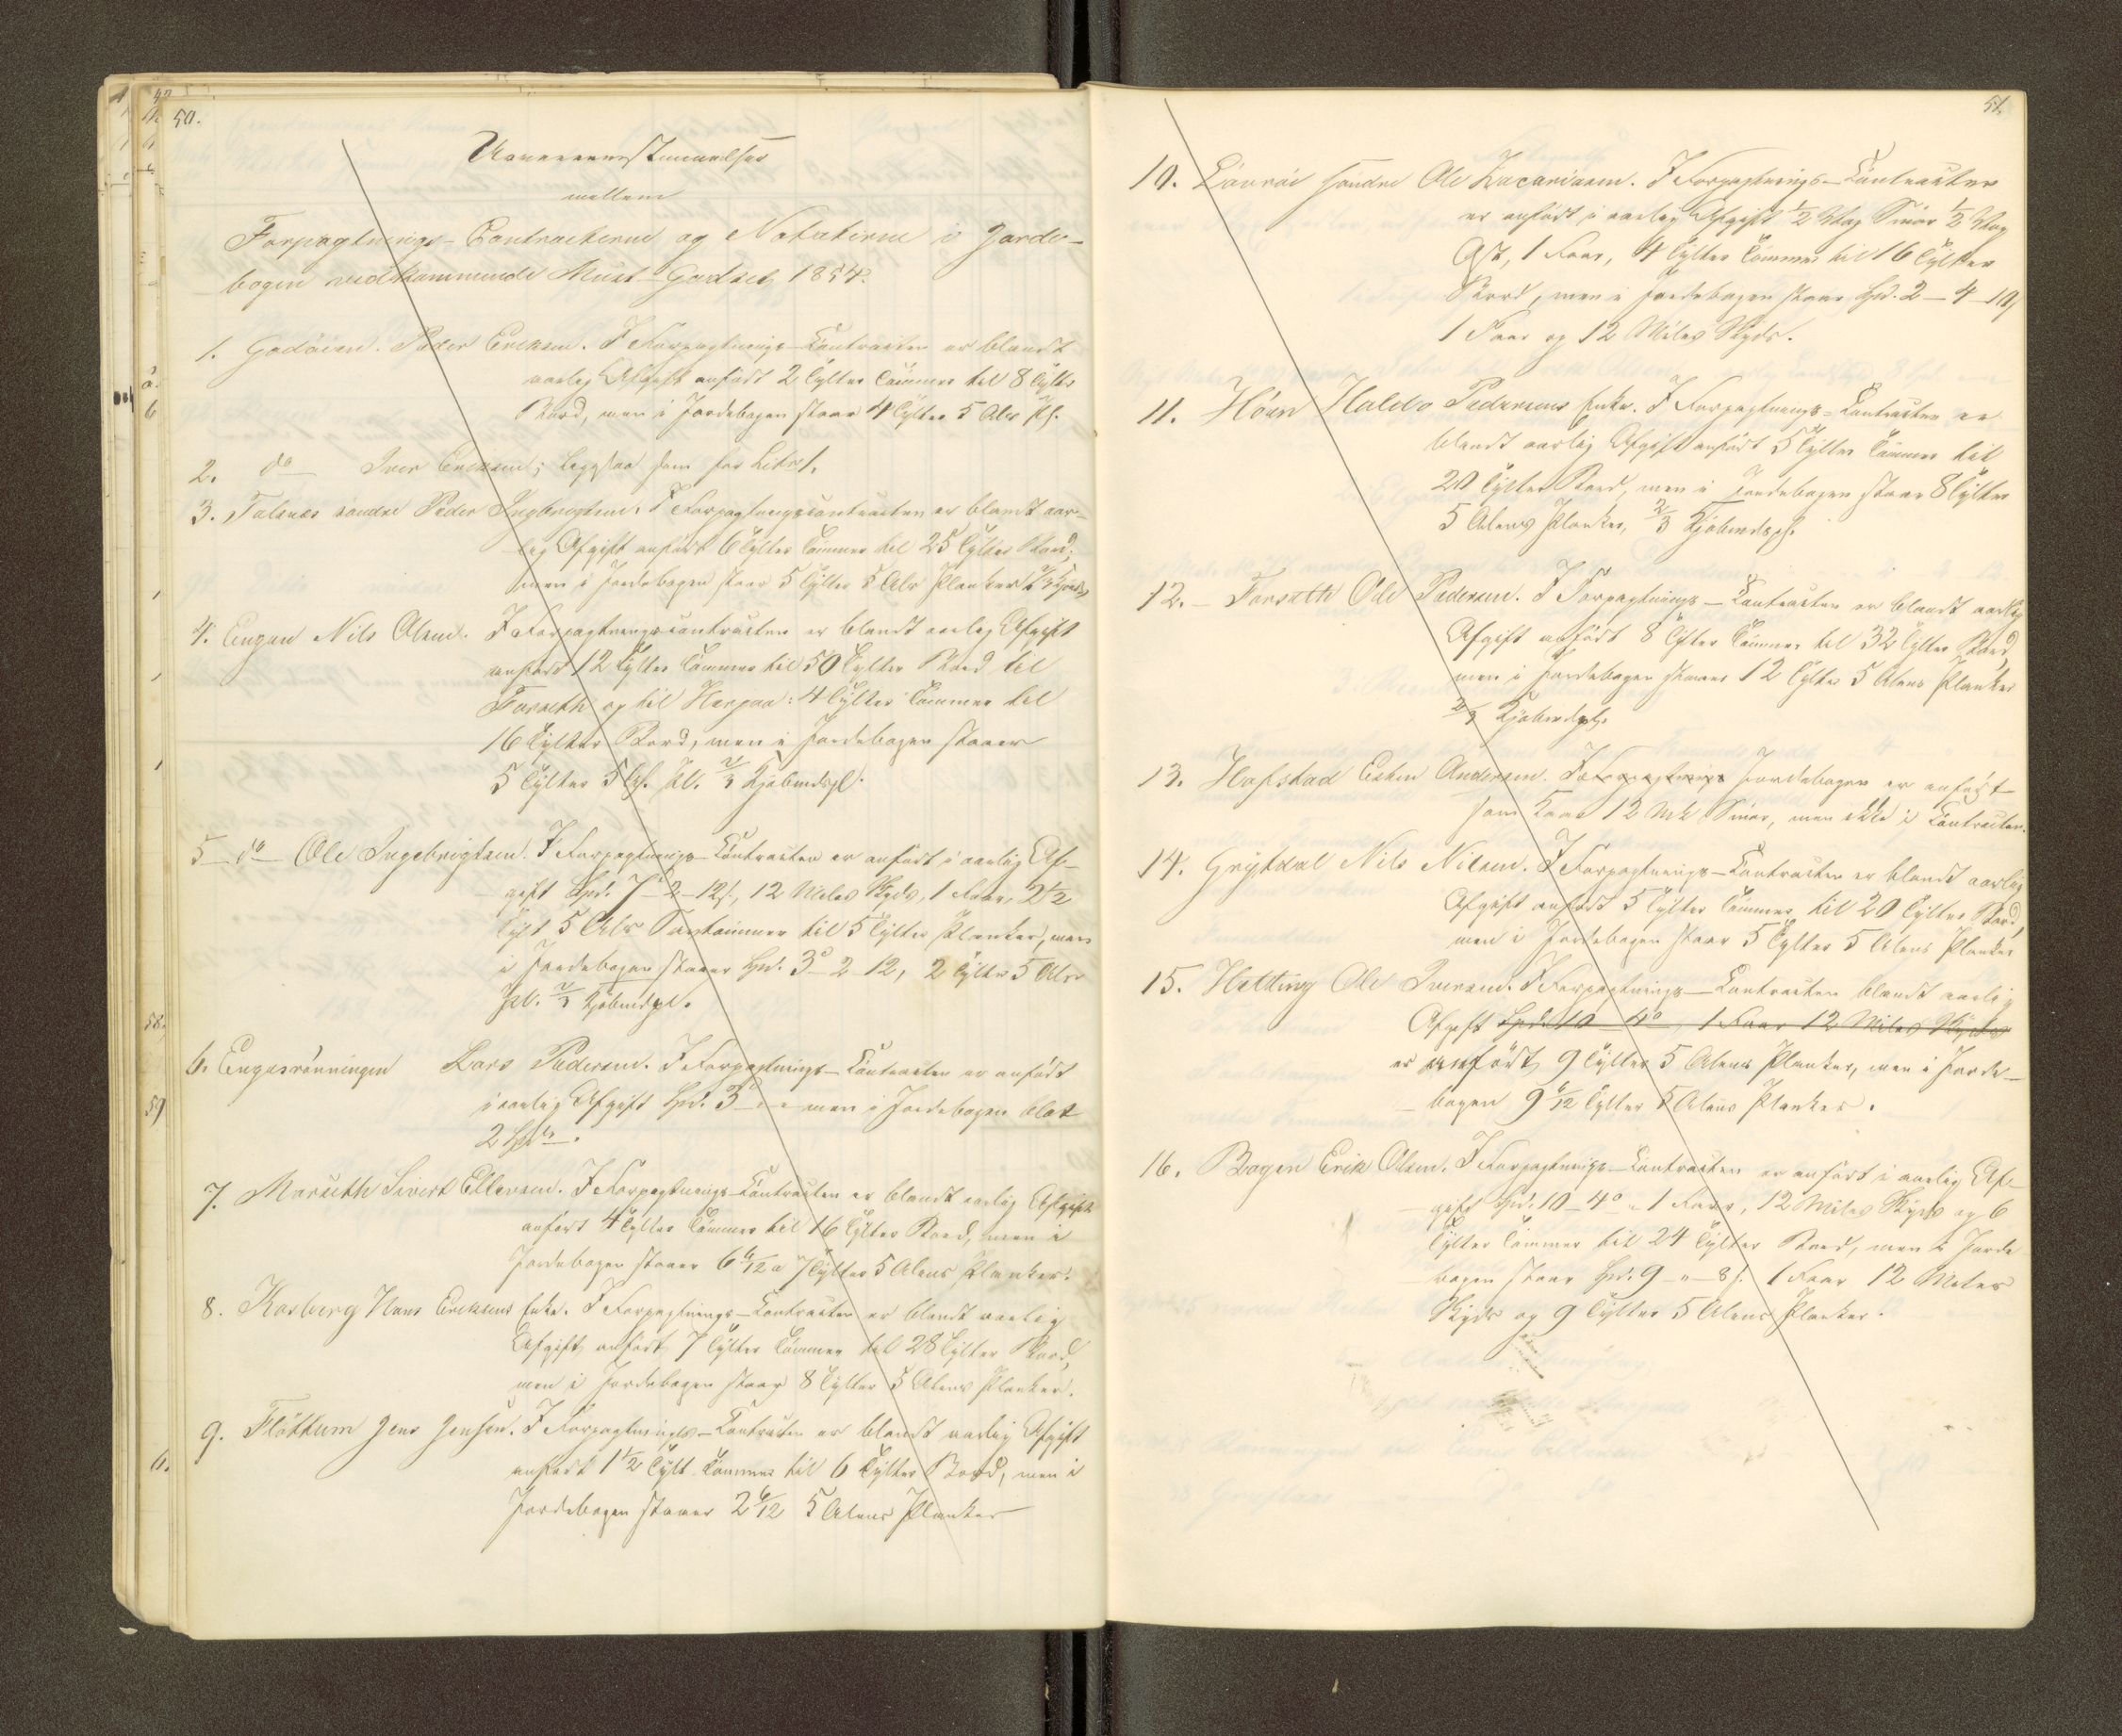 50.
Uoverensstemmelser
mellem
Forpagtnings-Contracterne og Notaterne i Jorde-
bogen vedkommende Godset 1854.
1. Godöien. Peder Eriksen. I Forpagtnings-Contracten er blandt
aarlig Afgift anfört 2 Tylter Tömmer til 8 Tylter
Bord, men i Jordebogen staar 4 Tylter 5 Alns Pl.
2. do Iver Eriksen; ligesaa som for Litr 1.
3. söndre Peder Ingbrigtsen. I Forpagtningscontracten er blandt aar-
lig Afgift anfört 6 Tylter Tömmer til 25 Tylter Bord;
men i Jordebogen staar 5 Tylter 5 Alns Planker
4. Engan Nils Olsen. I Forpagtningscontracten er blandt aarlig Afgift
anfört 12 Tylter Tömmer til 50 Tylter Bord til
Forseth og til : 4 Tylter Tömmer til
16 Tylter Bord, men i Jordebogen staaer
5 Tylter 5 Al. Pl. 2/3 Kjöbmdspl.
5 do Ole Ingebrigtsen. I Forpagtnings-Contracten er anfört i aarlig Af-
gift Spd. 7-2-12 s., 12 Miles Skyds, 1 Faar, 2 1/2
Tylt 5 Alns til 5 Tylter Planker, men
i Jordebogen staaer Spd. 3-2-12, 2 Tylter 5 Alns
Pl. 2/3 Kjöbmdspl.
6. Engesrönningen Lars Pedersen. I Forpagtnings-Contracten er anfört
i aarlig Afgift Spd. 3 - " - " men i Jordebogen blot
2 Spd.
7. Marseth Sivert Ellevsen. I Forpagtnings-Contracten er blandt aarlig Afgift
anfört 4 Tylter Tömmer til 16 Tylter Bord, men i
Jordebogen staaer 6 6/12 a 7 Tylter 5 Alens Planker.
8. Kosberg Hans Eriksens Enke. I Forpagtnings-Contracten er blandt aarlig
Afgift anfört 7 Tylter Tömmer til 28 Tylter Bord,
men i Jordebogen staar 8 Tylter 5 Alens Planker.
9. Flöttum Jens Jensen. I Forpagtnings-Contracten er blandt aarlig Afgift
anfört 1 1/2 Tylt Tömmer til 6 Tylter Bord, men i
Jordebogen staaer 2 6/12 5 Alens Planker
51.
10. söndre Ole Zacariasen. I Forpagtnings-Contracten
er anfört i aarlig Afgift 1/2 Vog Smör 1/2 Vog
Ost, 1 Faar, 4 Tylter Tömmer til 16 Tylter
Bord, men i Jordebogen staar Spd. 2-4-19
1 Faar og 12 Miles Skyds.
11. Haldo Pedersens Enke. I Forpagtnings-Contracten er
blandt aarlig Afgift anfört 5 Tylter Tömmer til
20 Tylter Bord, men i Jordebogen staar 8 Tylter
5 Alens Planker, 2/3 Kjöbmdspl.
12. Forseth Ole Pedersen. I Forpagtnings-Contracten er blandt aarlig
Afgift anfört 8 Tylter Tömmer til 32 Tylter Bord,
men i Jordebogen staaer 12 Tylter 5 Alens Planker
2/3 Kjöbmdspl.
13. Hofstad Esten Andersen. I Forpagtnings Jordebogen er anfört
som 12 Mk Smör, men ikke i Contracten.
14. Grytdal Nils Nilsen. I Forpagtnings-Contracten er blandt aarlig
Afgift anfört 5 Tylter Tömmer til 20 Tylter Bord,
men i Jordebogen staar 5 Tylter 5 Alens Planker
15. Hetting Ole Iversen. I Forpagtnings-Contracten blandt aarlig
Afgift Spd. 10 - 4 1 Faar 12 Miles Skyds
er anfört 9 Tylter 5 Alens Planker, men i Jorde-
bogen 9 6/12 Tylter 5 Alens Planker.
16. Bogen Erik Olsen. I Forpagtnings-Contracten er anfört i aarlig Af-
gift Spd. 10-4 - " 1 Faar, 12 Miles Skyds og 6
Tylter Tömmer til 24 Tylter Bord, men i Jorde
bogen staar Spd. 9 - " - 8 s. 1 Faar 12 Miles
Skyds og 9 Tylter 5 Alens Planker.